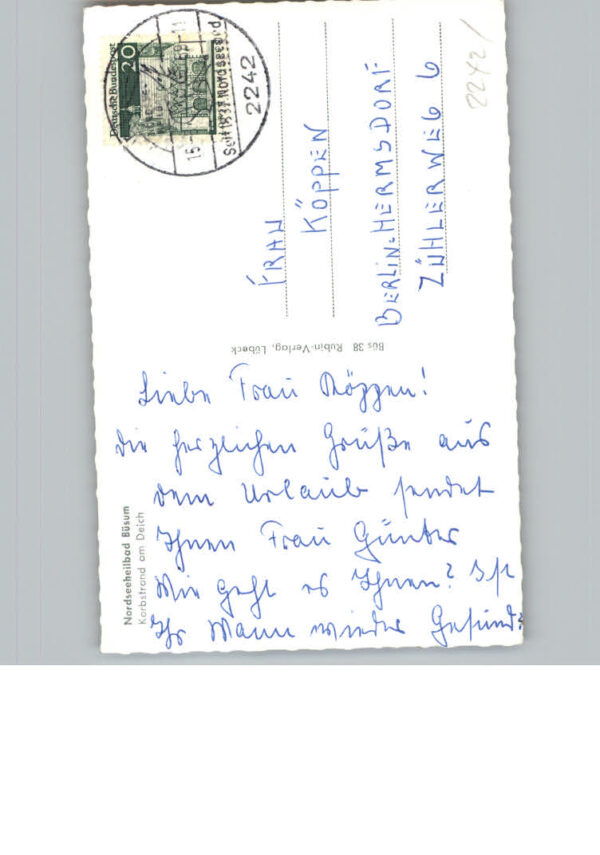 Deutsche Bundespost
20
Seit 1837 Nordseebad
2242
2242/
FRAU
KÖPPEN
BERLIN-HERMSDORF
ZÜHLERWEG 6
Büs 38 Rubin-Verlag, Lübeck
Liebe Frau Köppen!
die herzlichen Grüße aus
dem Urlaub sendet
Ihnen Frau Günter
Wie geht es Ihnen? Ist
Ihr Mann wieder Gesund?
Nordseeheilbad Büsum
Korbstrand am Deich